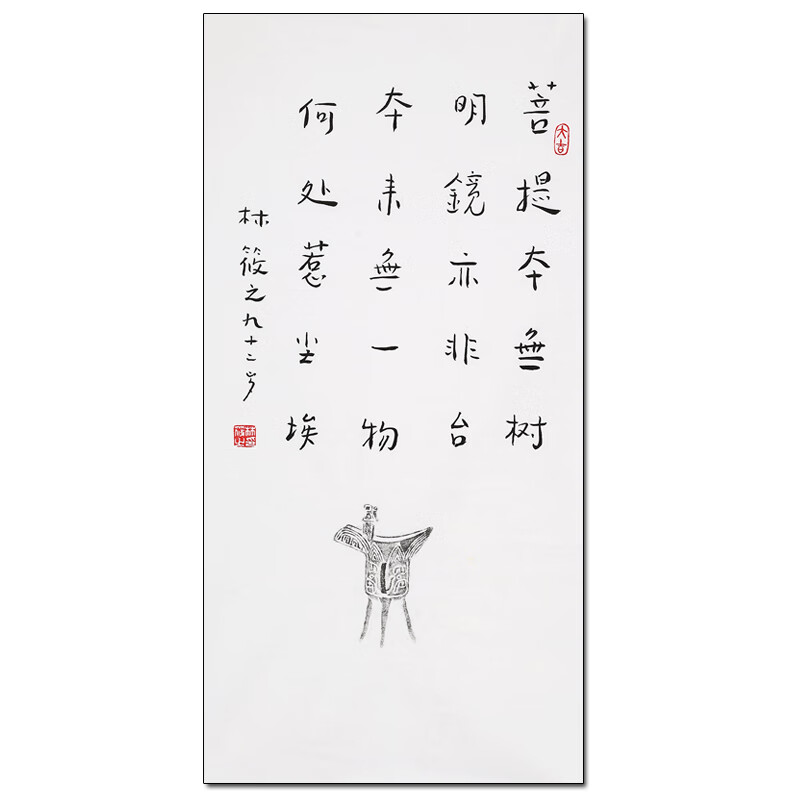 菩提本無树
明鏡亦非台
本来無一物
何处惹尘埃
林筱之九十二岁
大吉